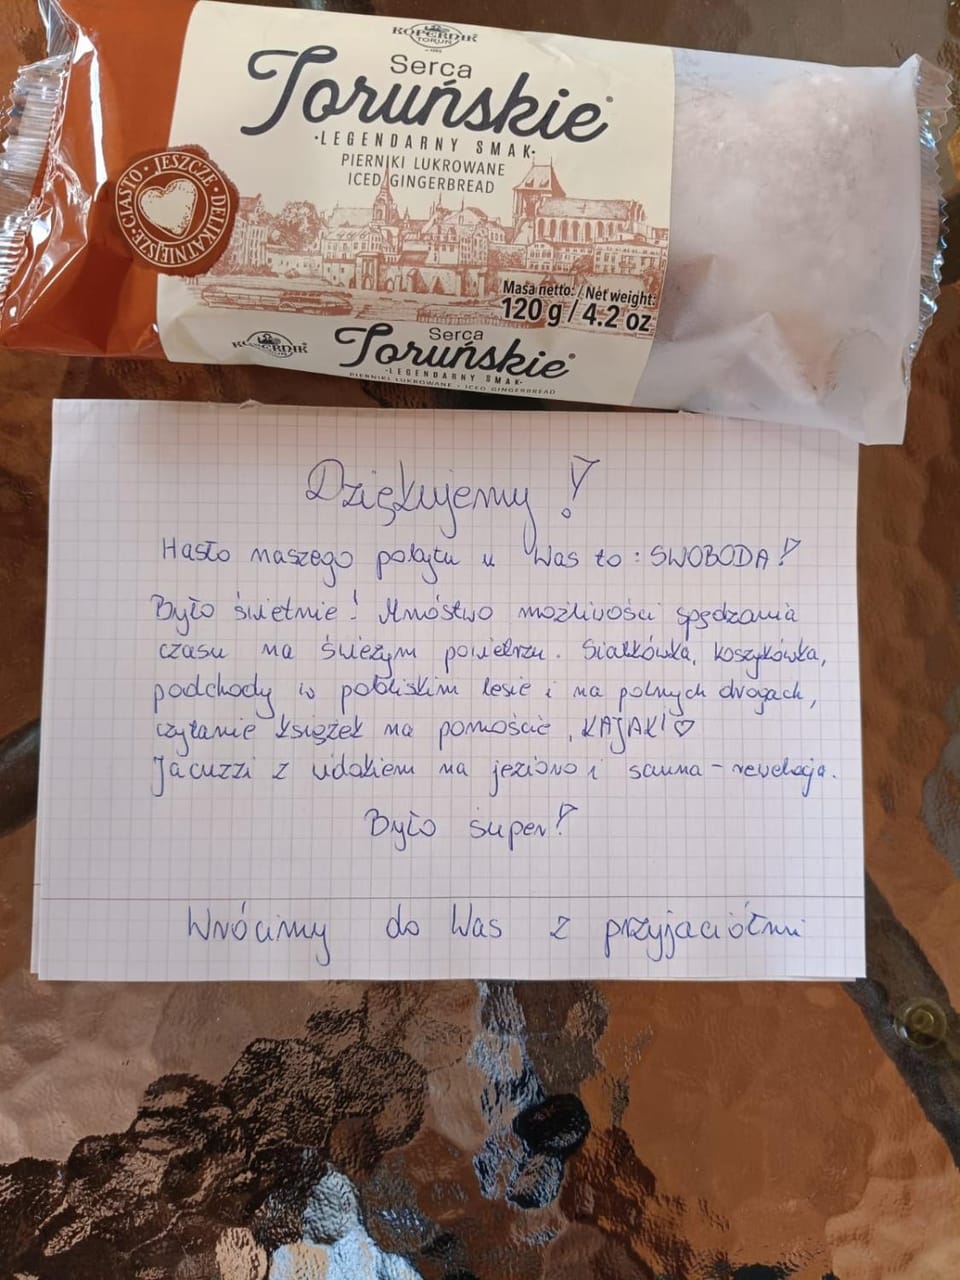 KOPERNIK
TORUŃ
Serca
Toruńskie
·LEGENDARNY SMAK·
PIERNIKI LUKROWANE
ICED GINGERBREAD
CIASTO · JESZCZE · DELIKATNIEJSZE ·
Masa netto: / Net weight:
120 g / 4.2 oz
KOPERNIK
Serca
Toruńskie
·LEGENDARNY SMAK·
PIERNIKI LUKROWANE · ICED GINGERBREAD
Dziękujemy!
Hasło naszego pobytu u Was to: SWOBODA!
Było świetnie! Mnóstwo możliwości spędzania
czasu na świeżym powietrzu. Siatkówka, koszykówka,
podchody w pobliskim lesie i na polnych drogach,
czytanie książek na pomoście, KAJAKI ♡
Jacuzzi z widokiem na jezioro i sauna – rewelacja.
Było super!
Wrócimy do Was z przyjaciółmi